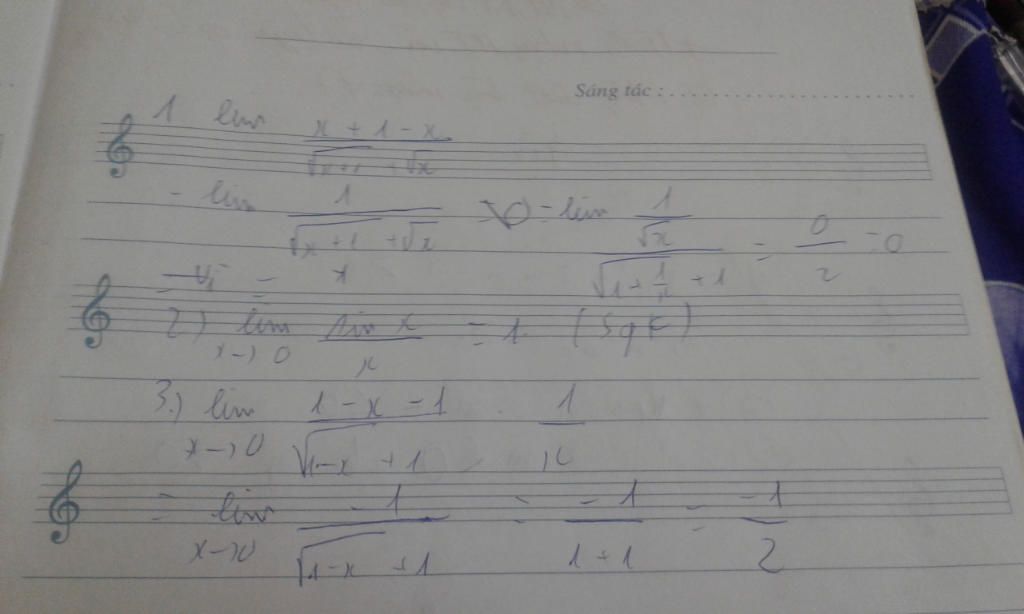 Sáng tác : ........................
1 lim (x + 1 - x)/(√(x+1) + √x)
= lim 1/(√(x+1) + √x) = lim (1/√x)/(√(1 + 1/x) + 1) = 0/2 = 0
2) lim x→0 sin x/x = 1 (SgK)
3.) lim x→0 (1 - x - 1)/(√(1-x) + 1) . 1/x
= lim x→0 -1/(√(1-x) + 1) = -1/(1+1) = -1/2